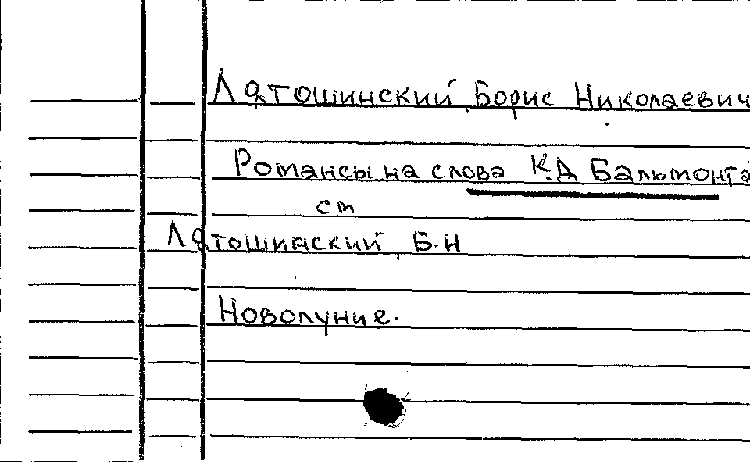 Лятошинский Борис Николаевич
Романсы на слова К.Д Бальмонта
см
Лятошинский Б.Н
Новолуние.